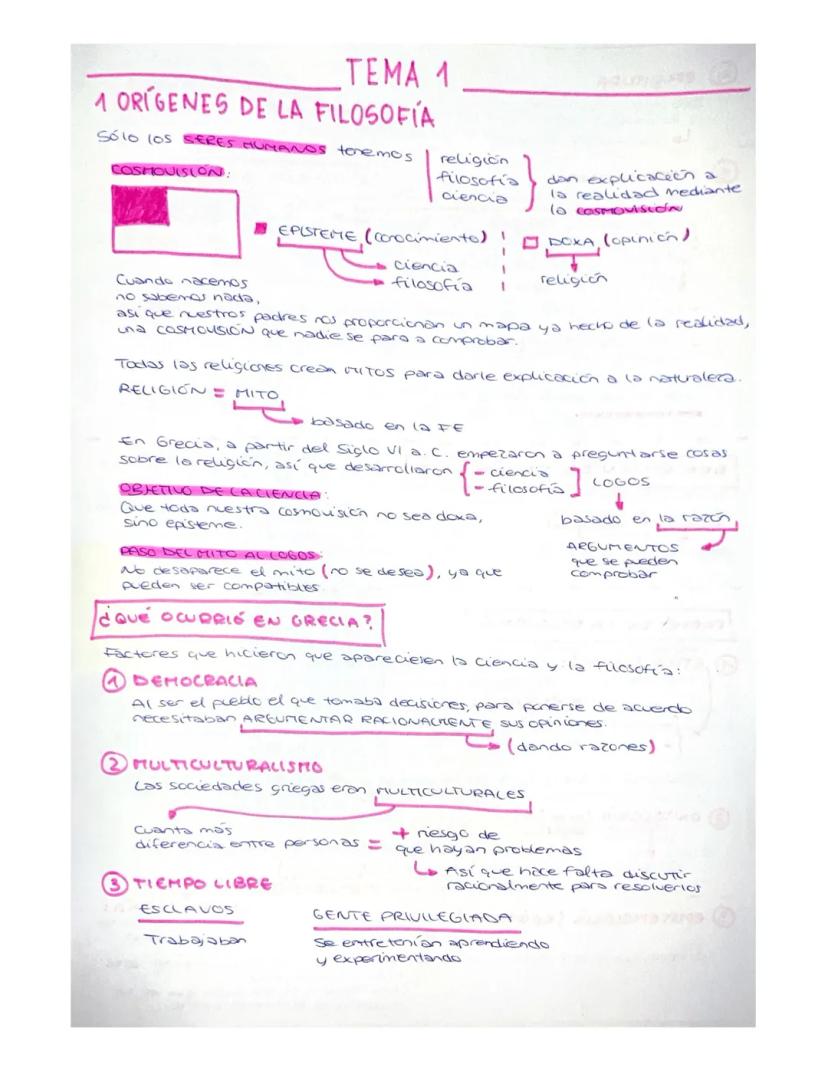 TEMA 1
1 ORÍGENES DE LA FILOSOFÍA
Sólo los SERES HUMANOS tenemos
religión
filosofía
ciencia
dan explicación a
la realidad mediante
la COSMOVISIÓN
COSMOVISIÓN:
EPISTEME (conocimiento)
ciencia
filosofía
DOXA (opinión)
religión
Cuando nacemos
no sabemos nada,
así que nuestros padres nos proporcionan un mapa ya hecho de la realidad,
una COSMOVISIÓN que nadie se para a comprobar.
Todas las religiones crean MITOS para darle explicación a la naturaleza.
RELIGIÓN = MITO
basado en la FE
En Grecia, a partir del Siglo VI a. C. empezaron a preguntarse cosas
sobre la religión, así que desarrollaron
- ciencia
- filosofía
LOGOS
basado en la razón
ARGUMENTOS
que se pueden
comprobar
OBJETIVO DE LA CIENCIA:
Que toda nuestra cosmovisión no sea doxa,
sino episteme.
PASO DEL MITO AL LOGOS:
No desaparece el mito (no se desea), ya que
pueden ser compatibles.
¿QUÉ OCURRIÓ EN GRECIA?
Factores que hicieron que apareciesen la ciencia y la filosofía:
1 DEMOCRACIA
Al ser el pueblo el que tomaba decisiones, para ponerse de acuerdo
necesitaban ARGUMENTAR RACIONALMENTE sus opiniones.
(dando razones)
2 MULTICULTURALISMO
Las sociedades griegas eran MULTICULTURALES
Cuanta más
diferencia entre personas =
+ riesgo de
que hayan problemas
Así que hace falta discutir
racionalmente para resolverlos
3 TIEMPO LIBRE
ESCLAVOS
Trabajaban
GENTE PRIVILEGIADA
Se entretenían aprendiendo
y experimentando